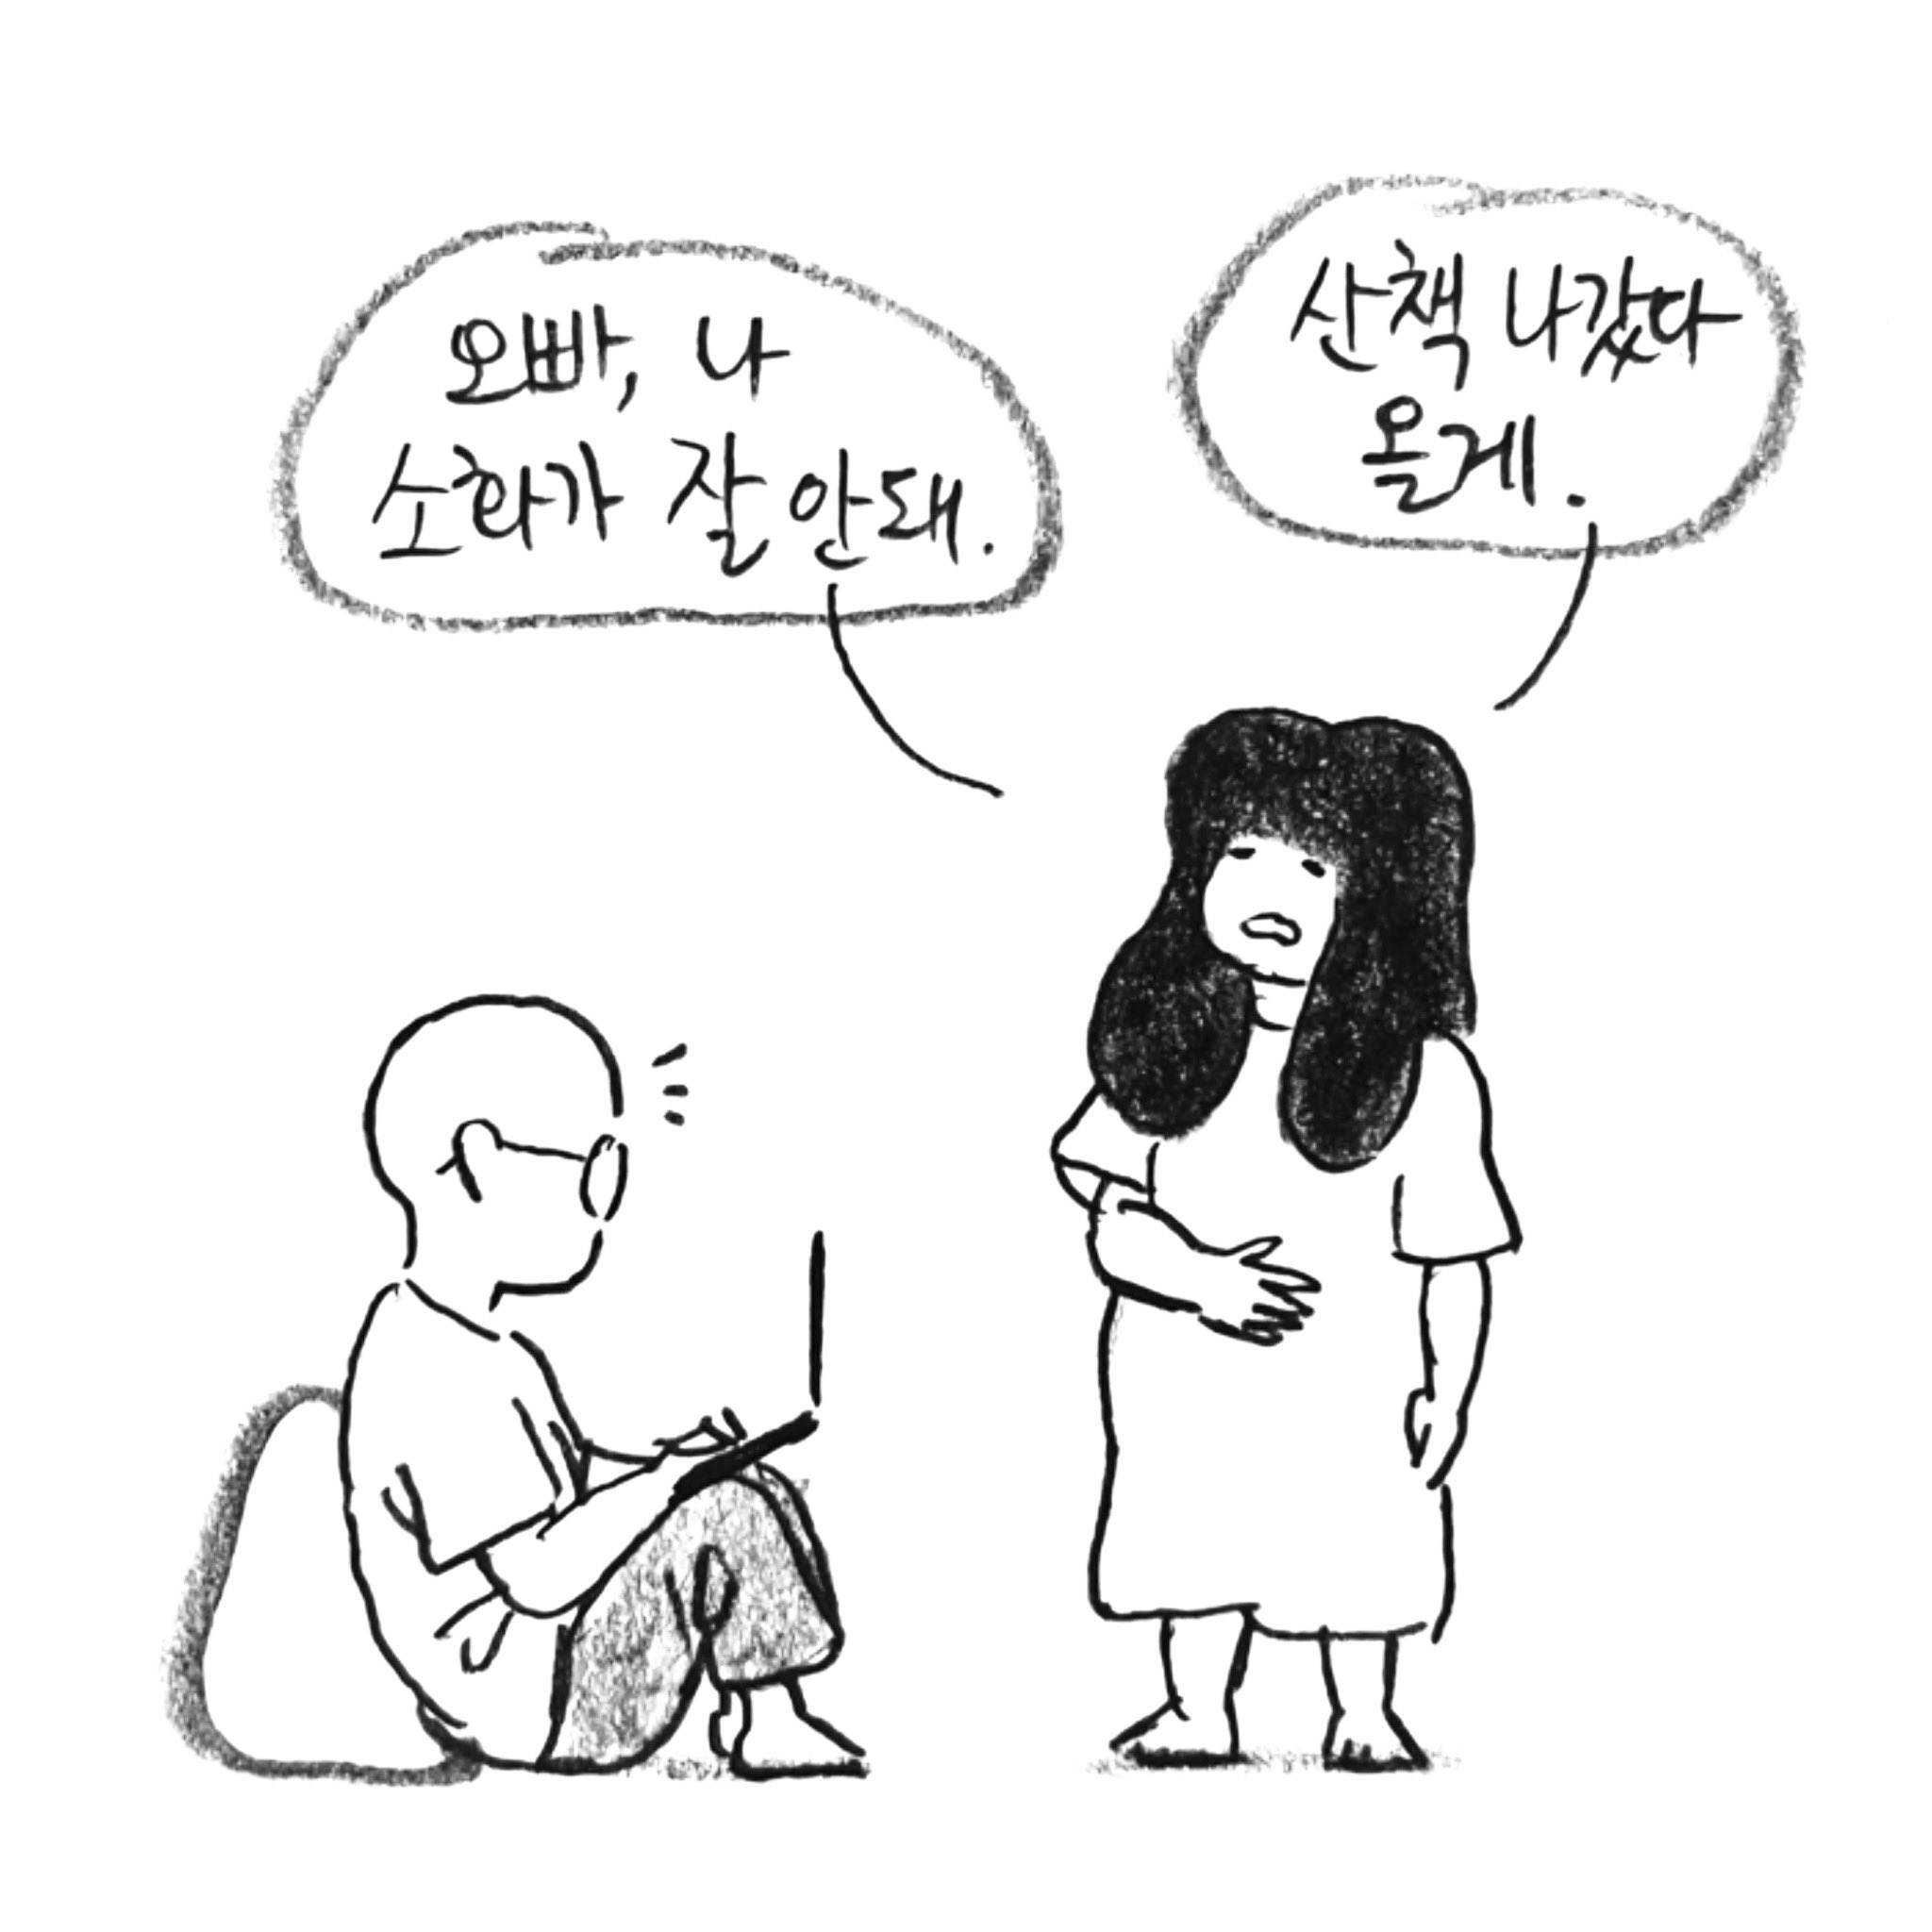 오빠, 나
소화가 잘 안돼.
산책 나갔다
올게.